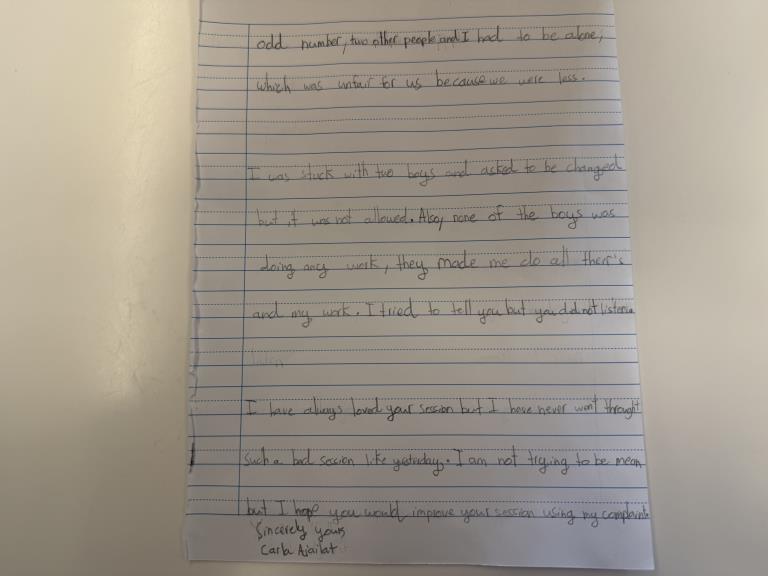 odd number, two other people and I had to be alone,
which was unfair for us because we were less.
I was stuck with two boys and asked to be changed
but it was not allowed. Also, none of the boys was
doing any work, they made me do all ther's
and my work. I tried to tell you but you did not listen
I have always loved your session but I have never went throught
such a bad session like yesturday. I am not trying to be mean
but I hope you would improve your session using my complaint.
Sincerely yours